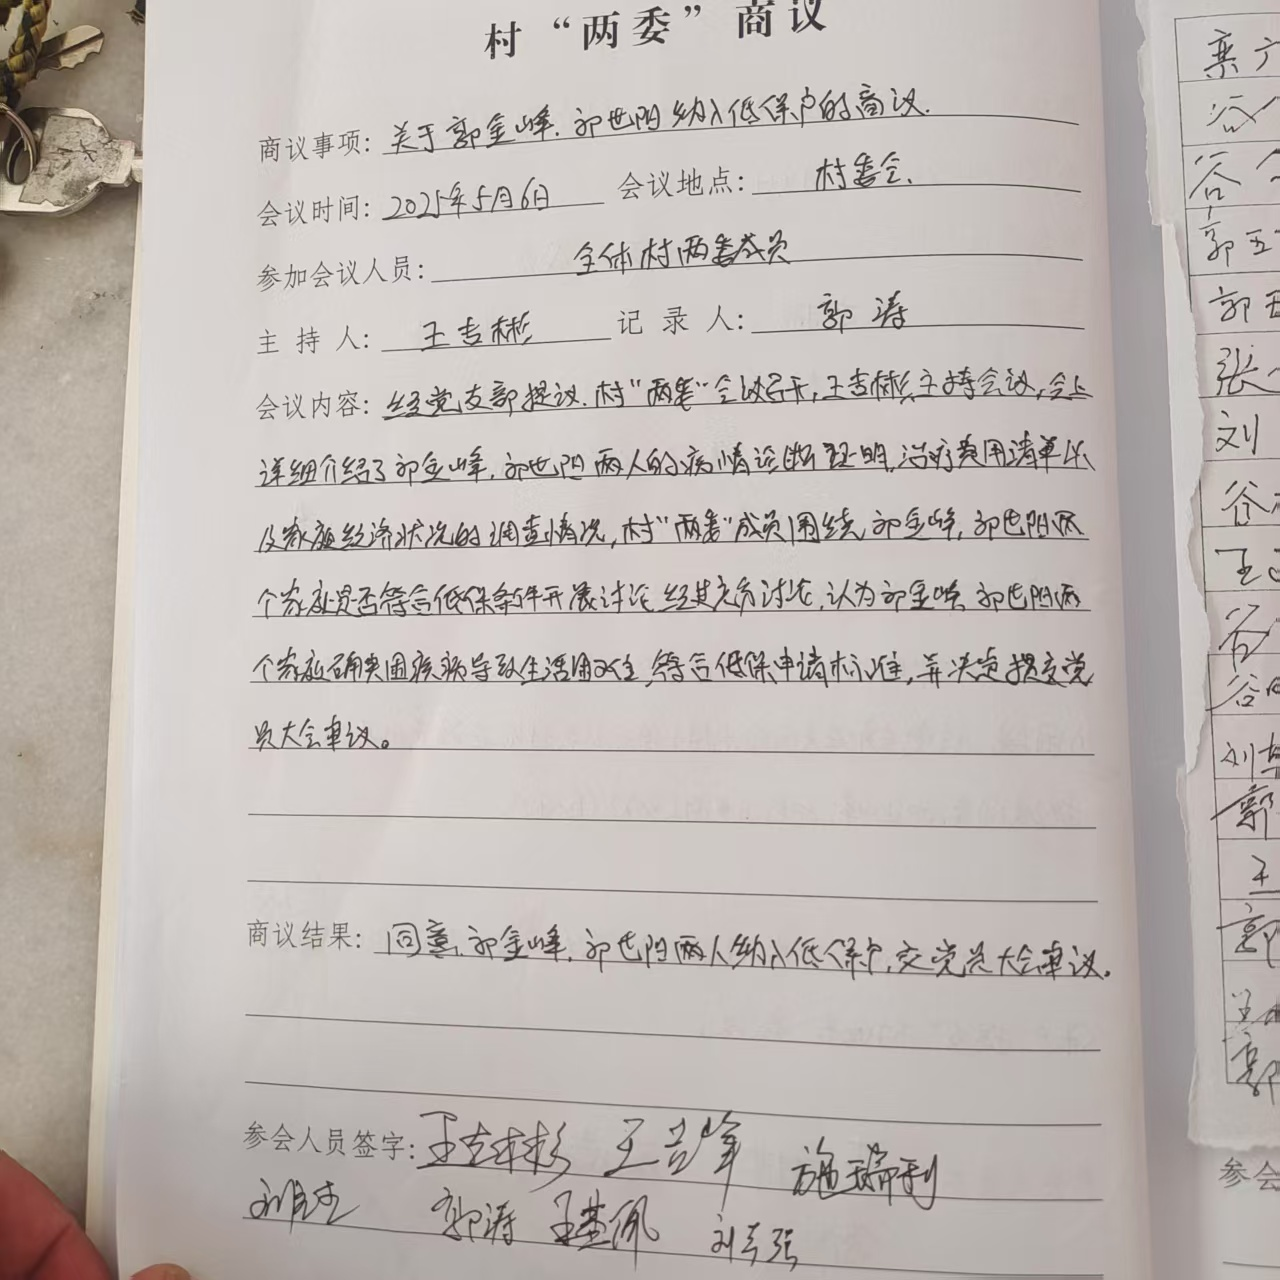 村“两委”商议
商议事项: 关于郭金峰、郭世阳纳入低保户的商议.
会议时间: 2025年5月6日 会议地点: 村委会.
参加会议人员: 全体村两委成员
主持人: 王吉彬 记录人: 郭涛
会议内容: 经党支部提议.村“两委”会议召开,王吉彬主持会议,会上
详细介绍了郭金峰,郭世阳两人的病情诊断证明,治疗费用清单以
及家庭经济状况的调查情况,村“两委”成员围绕郭金峰,郭世阳两
个家庭是否符合低保条件开展讨论,经其充分讨论,认为郭金峰 郭世阳两
个家庭确实因疾病导致生活困难,符合低保申请标准,并决定提交党
员大会审议。
商议结果: 同意郭金峰,郭世阳两人纳入低保户,交党员大会审议。
参会人员签字: 王吉彬 王吉峰 施瑞利
郭涛 王基佩
栾
谷
郭五
郭
张
刘
谷
王
谷
谷
刘
郭
王
郭
郭
参会